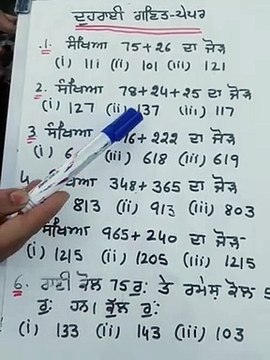 ਦੁਹਰਾਈ ਗਣਿਤ-ਪੇਪਰ
1. ਸੰਖਿਆ 75+26 ਦਾ ਜੋੜ
(i) 111 (ii) 101 (iii) 121
2. ਸੰਖਿਆ 78+24+25 ਦਾ ਜੋੜ
(i) 127 (ii) 137 (iii) 117
3 ਸੰਖਿਆ 6+222 ਦਾ ਜੋੜ
(i) 6 (ii) 618 (iii) 619
4 ਸੰਖਿਆ 348+365 ਦਾ ਜੋੜ
813 (ii) 913 (iii) 803
ਸੰਖਿਆ 965+240 ਦਾ ਜੋੜ
(i) 1215 (ii) 1205 (iii) 1215
6. ਰਾਣੀ ਕੋਲ 75 ਰੁ: ਤੇ ਰਮੇਸ਼ ਕੋਲ 5
ਰੁ: ਹਨ। ਕੁੱਲ ਰੁ:
(i) 133 (ii) 143 (iii) 103